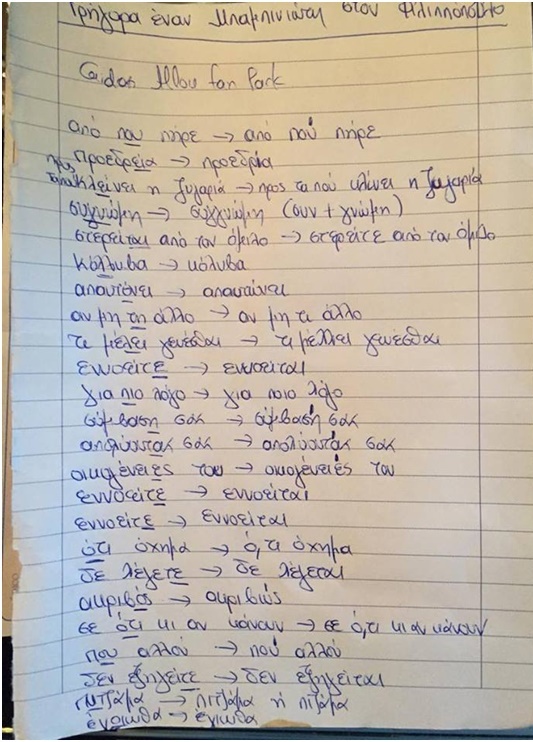 Γρήγορα έναν Μπαμπινιώτη στον Φιλιππόπουλο
fan Park
από που πήρε → από πού πήρε
Προεδρεια → προεδρία
προς τα που Κλείνει η ζυγαριά → προς τα πού κλίνει η ζυγαριά
συγνώμη → συγγνώμη (συν + γνώμη)
στερείται από τον όμιλο → στερείτε από τον όμιλο
Κόλλυβα → κόλυβα
απαυτόνει → απαυταίνει
αν μη τη άλλο → αν μη τι άλλο
τι μέλει γενέσθαι → τι μέλλει γενέσθαι
εννοείτε → εννοείται
για πιο λόγο → για ποιο λόγο
σύμβαση σας → σύμβασή σας
απολύοντας σας → απολύοντάς σας
οικογένειες του → οικογένειές του
εννοείτε → εννοείται
εννοείτε → εννοείται
ότι όχημα → ό,τι όχημα
δε λέγετε → δε λέγεται
ακριβός → ακριβώς
σε ότι κι αν κάνουν → σε ό,τι κι αν κάνουν
που αλλού → πού αλλού
δεν εξηγείτε → δεν εξηγείται
πιτζάμα ή πιζάμα
ένοιωθα → ένιωθα